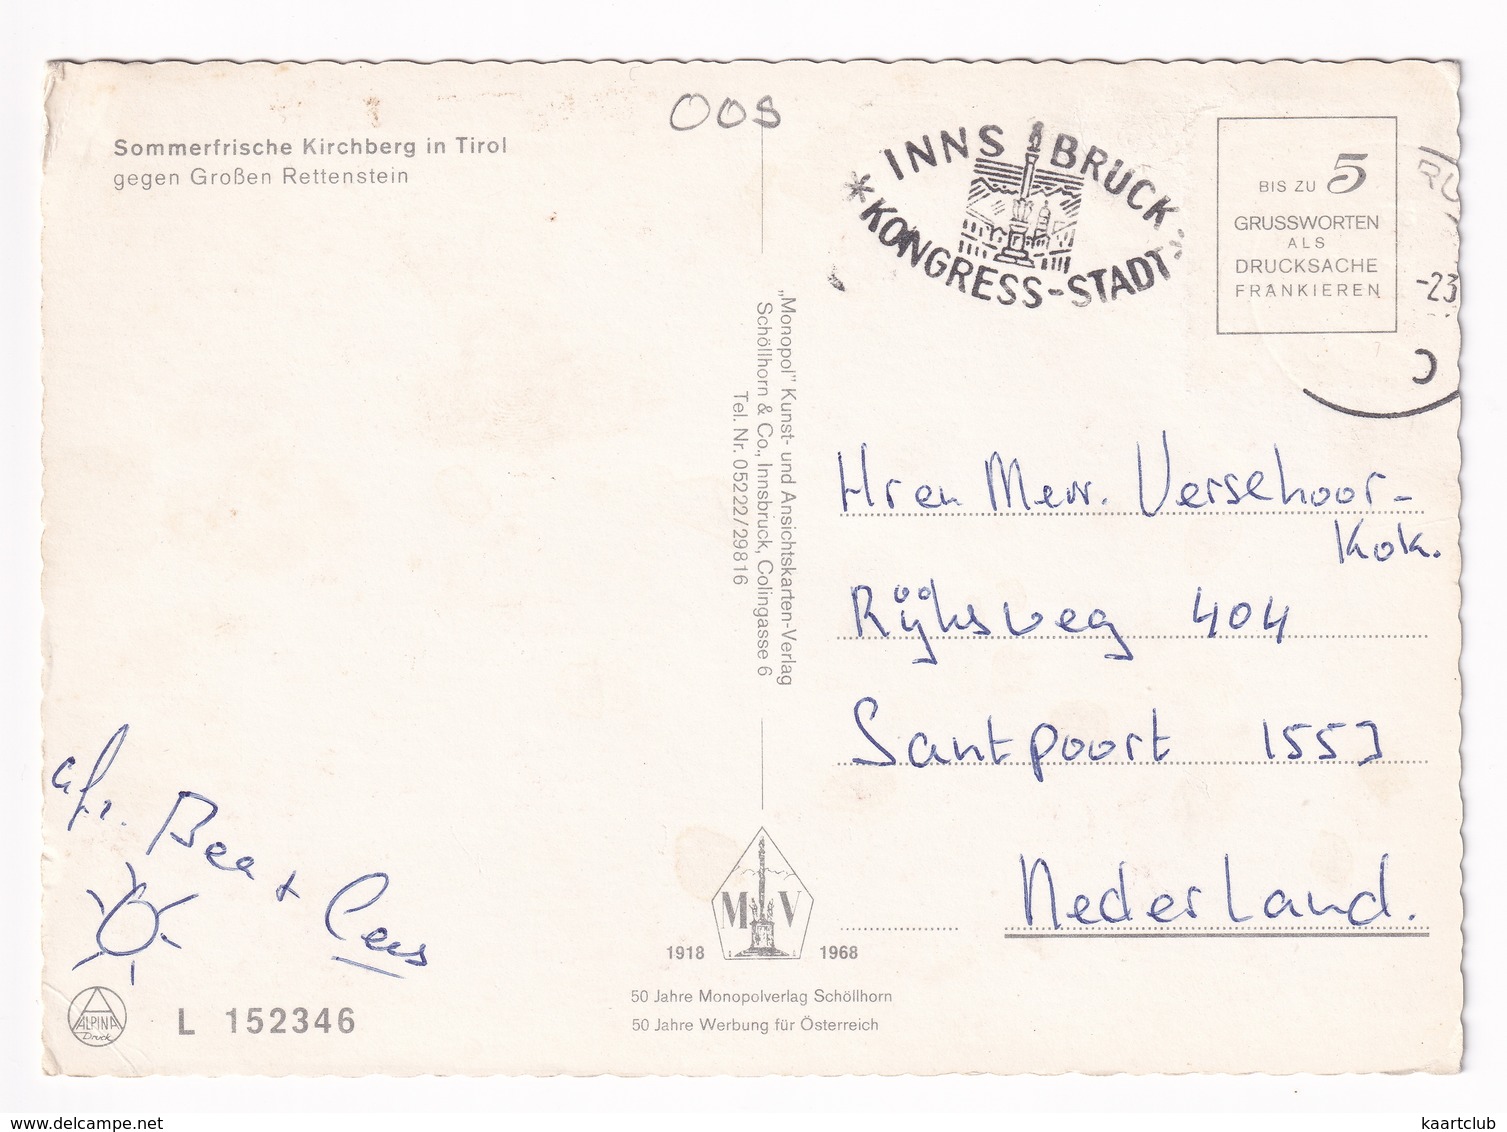 OOS
Sommerfrische Kirchberg in Tirol
gegen Großen Rettenstein
INNSBRUCK
KONGRESS-STADT
BIS ZU 5
GRUSSWORTEN
ALS
DRUCKSACHE
FRANKIEREN
RU
-23
„Monopol" Kunst- und Ansichtskarten-Verlag
Schöllhorn & Co., Innsbruck, Colingasse 6
Tel. Nr. 05222/29816
Hr en Mevr. Verschoor-
Kok.
Rijksweg 404
Santpoort 1553
Nederland.
afz. Bea + Cees
M V
1918 1968
50 Jahre Monopolverlag Schöllhorn
50 Jahre Werbung für Österreich
ALPINA
Druck
L 152346
www.delcampe.net
kaartclub